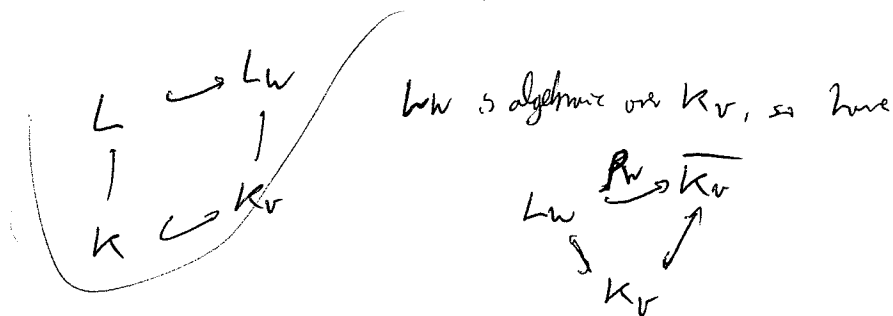 L ↪ L_w
K ↪ K_v
L_w is algebraic over K_v, so have
L_w ↪ \overline{K_v}
K_v